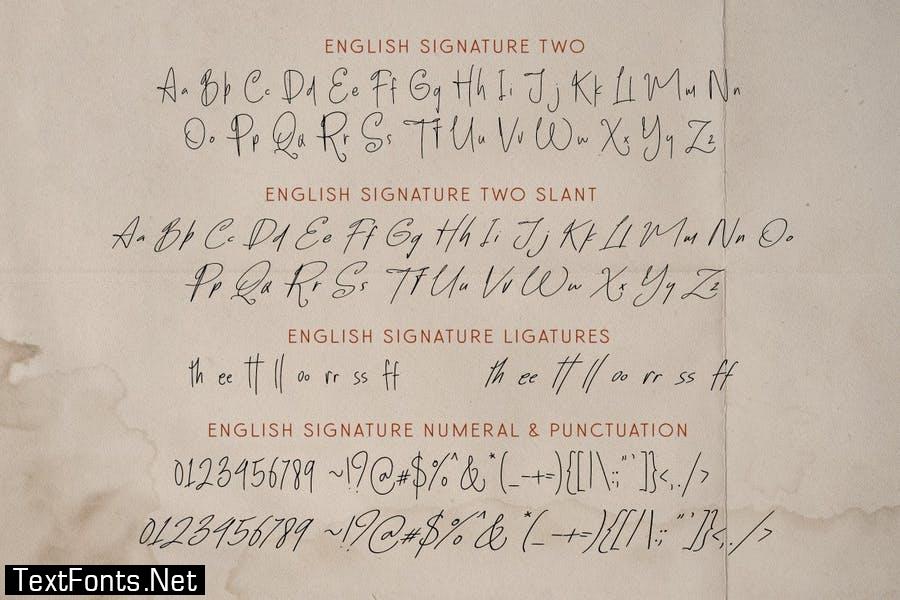 ENGLISH SIGNATURE TWO
Aa Bb Cc Dd Ee Ff Gg Hh Ii Jj Kk Ll Mm Nn
Oo Pp Qq Rr Ss Tt Uu Vv Ww Xx Yy Zz
ENGLISH SIGNATURE TWO SLANT
Aa Bb Cc Dd Ee Ff Gg Hh Ii Jj Kk Ll Mm Nn Oo
Pp Qq Rr Ss Tt Uu Vv Ww Xx Yy Zz
ENGLISH SIGNATURE LIGATURES
th ee tt ll oo rr ss ff th ee tt ll oo rr ss ff
ENGLISH SIGNATURE NUMERAL & PUNCTUATION
0123456789 ~!?@#$%^&*(_-+=){[|\:;"']}<,./>
0123456789 ~!?@#$%^&*(_-+=){[|\:;"']}<,./>
TextFonts.Net